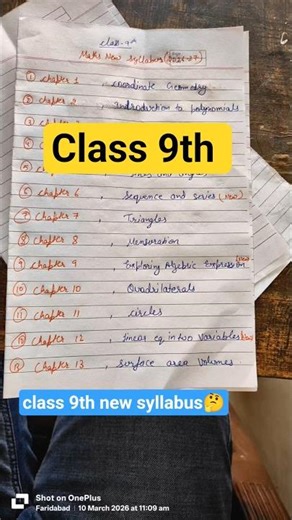 class-9th
Maths New Syllabus (2026-27)
① Chapter 1 , Coordinate Geometry
② Chapter 2 , Introduction to polynomials
Class 9th
⑥ Chapter 6 , Sequence and Series (new)
⑦ Chapter 7 , Triangles
⑧ Chapter 8 , Mensoration
⑨ Chapter 9 , Exploring Algebric Expression (new)
⑩ Chapter 10 , Quadrilaterals
⑪ Chapter 11 , circles
⑫ Chapter 12 , linear eq. in two Variables
⑬ Chapter 13 , Surface area Volumes.
class 9th new syllabus🤔
Shot on OnePlus
Faridabad | 10 March 2026 at 11:09 am